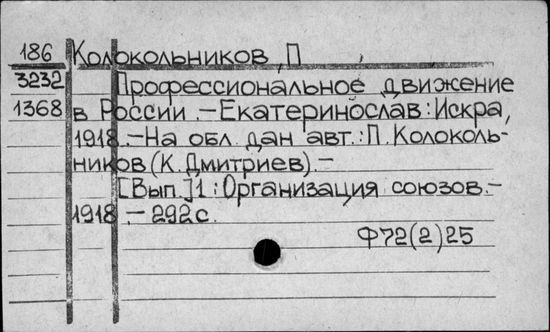 186 Колокольников, П
3232 Профессиональное движение
1368 в России.-Екатеринослав:Искра,
1918.-На обл. дан авт.:П.Колоколь-
ников(К.Дмитриев).-
[Вып.]1:Организация союзов.-
1918.-292с.
Ф72(2)25